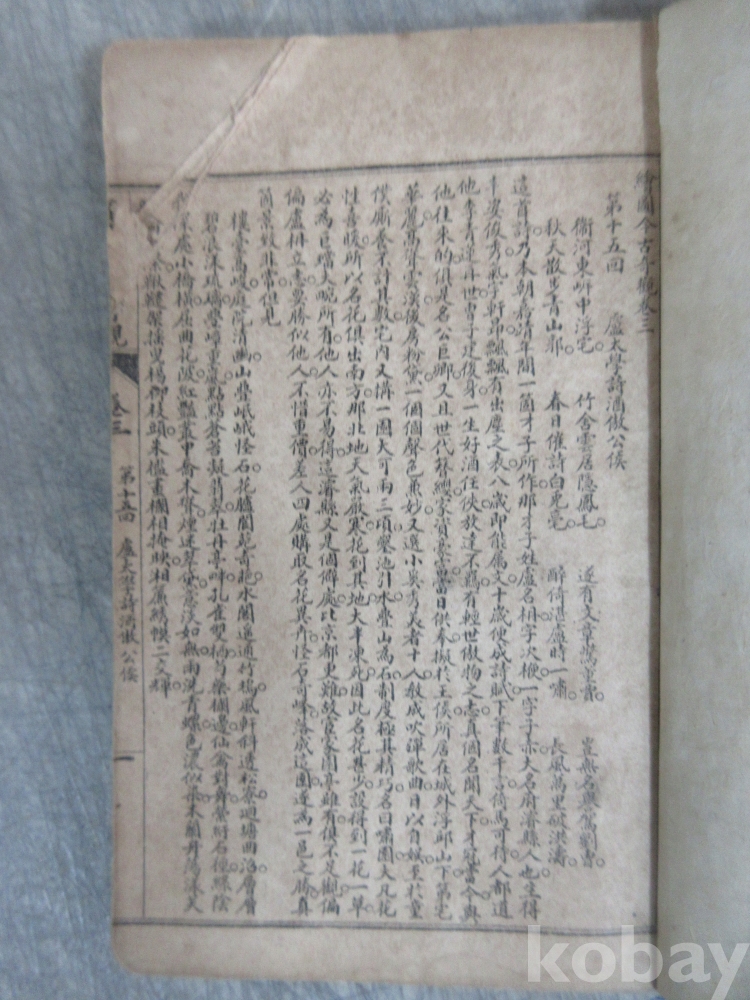 繪圖今古奇觀卷三
第十五回　盧太學詩酒傲公侯
衞河東岍中浮宅　竹舍雲居隱鳳毛　遂有文章驚董賈　豈無名譽駕劉曹
秋天散步青山郭　春日催詩白兎毫　醉倚湛盧時一嘯　長風萬里破洪濤
這首詩乃本朝嘉清年間一箇才子所作那才子姓盧名柟字次楩一字子赤大名府濬縣人也生得
丰姿俊秀氣宇軒昂飄飄有出塵之表八歲即能屬文十歲便成詩賦下筆數千言倚馬可待人都道
他李青蓮再世曹子建後身一生好酒任俠放達不羈有輕世傲物之志真個名聞天下才冠當今與
他往來的俱是名公巨卿又且世代簪纓家資豪富當日供奉擬於王侯所居在城外浮邱山下第宅
華麗高聳雲漢後房粉黛一個個聲色兼妙又選小奚秀美者十人教成吹彈歌曲日以自娛至於童
僕廝養不計其數宅內又搆一園大可兩三頃鑿池引水疊山為石制度極其精巧名曰嘯園大凡花
性喜暖所以名花俱出南方那北地天氣嚴寒花到其地大半凍死因此名花甚少設得到一花一草
必為巨璫大畹所有他人亦不易得這濬縣又是個僻處比京都更難故宦家園亭雖有俱不足觀偏
偏盧柟立志要勝似他人不惜重價差人四處購取名花異卉怪石奇峰落成這園遂為一邑之勝真
箇景致非常但見
樓臺高峻庭院清幽山疊岷峨怪石花臚閬苑奇葩水閣遙通竹塢風軒斜透松寮迴塘曲沼層層
碧浪漾琉璃疊嶂重巒點點蒼苔凝翡翠牡丹亭畔孔雀雙棲芍藥欄邊仙禽對舞縈紆石徑綠陰
深處小橋橫屈曲花陂紅豔叢中喬木聳煙迷翠黛意淡如無雨洗青螺色濃似染木蘭舟蕩漾天
鞦韆架搖曳楊柳枝頭朱檻畫欄相掩映湘簾綉幙二交輝
觀　卷三　第十五回　盧太學詩酒傲公侯　一
kobay